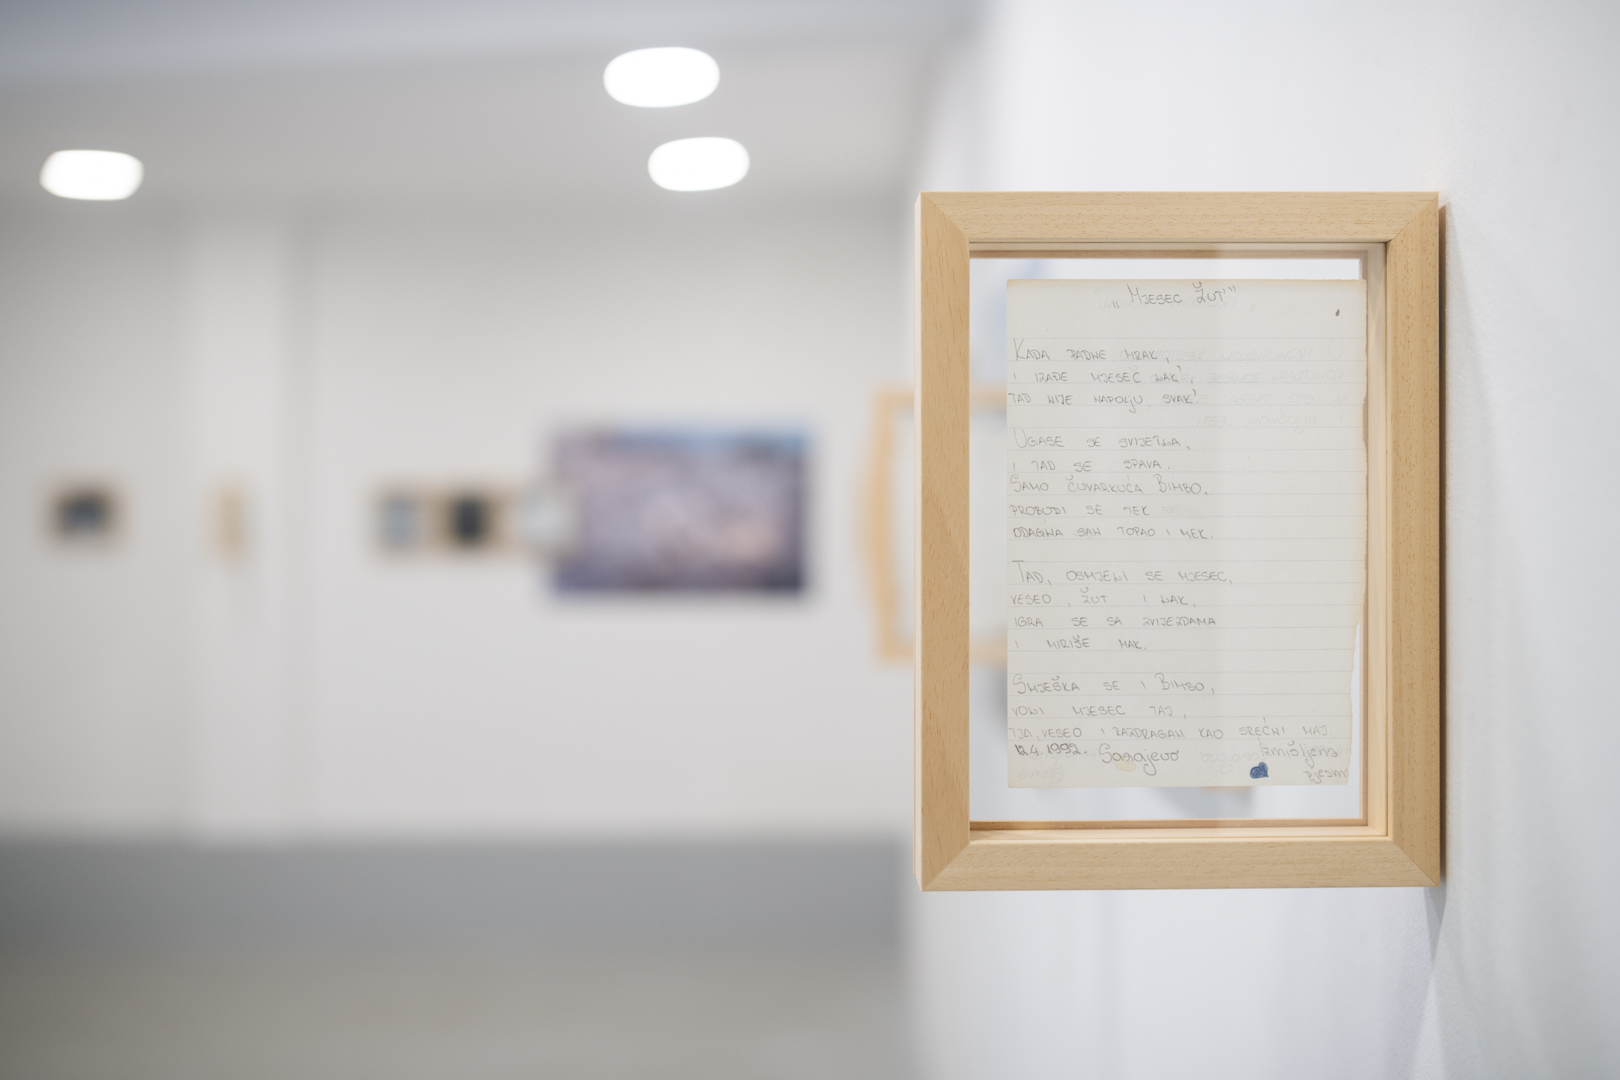 „Mjesec Žut"
Kada padne mrak,
i izađe mjesec lak',
tad nije napolju svak'.
Ugase se svijetla,
i tad se spava.
Samo čuvarkuća Bimbo,
probudi se tek
odagna san topao i mek.
Tad, osmjeni se mjesec,
veseo, žut i lak,
igra se sa zvijezdama
i miriše mak.
Smješka se i Bimbo,
voli mjesec taj,
tja, veseo i razdragan kao srećni maj.
12.4.1992. Sarajevo izmišljena
pjesm